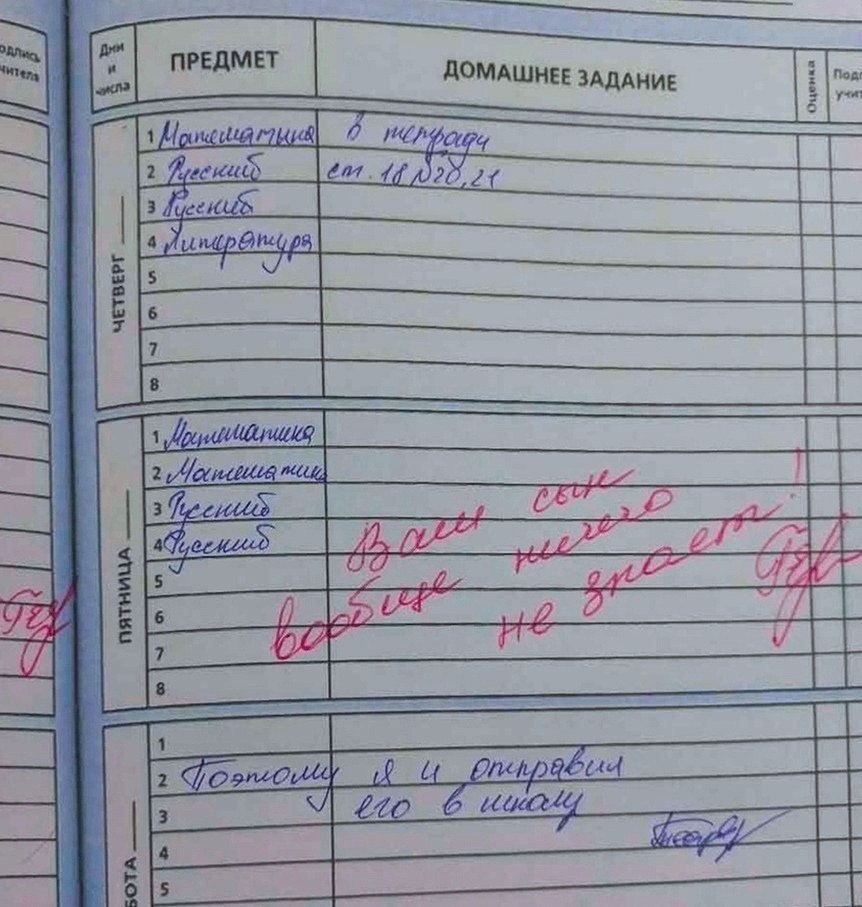 одпись
чителя
Дни
и
числа
ПРЕДМЕТ
ДОМАШНЕЕ ЗАДАНИЕ
Оценка
Под
учит
ЧЕТВЕРГ
1 Математика в тетради
2 Русский ст. 18 №20, 21
3 Русский
4 Литература
5
6
7
8
ПЯТНИЦА
1 Математика
2 Математика
3 Русский
4 Русский
5
6
7
8
Ваш сын
вообще ничего
не знает!
БОТА
1
2 Поэтому я и отправил
3 его в школу
4
5